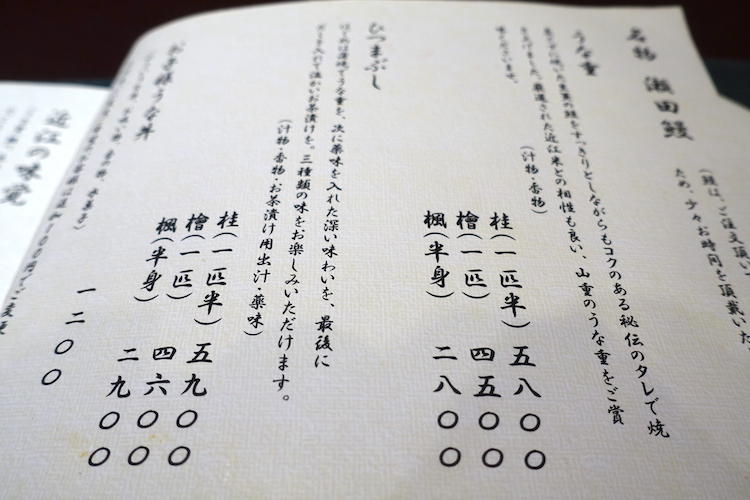 名物 瀬田鰻
(鰻は、ご注文頂い
ため、少々お時間を頂戴いた
うな重
焼きたての鰻をすっきりとしながらもコクのある秘伝のタレで焼
きあげました。厳選された近江米との相性も良い、山重のうな重をご賞
味くださいませ。
(汁物・香物)
桂(一匹半) 五八〇〇
檜(一匹) 四五〇〇
楓(半身) 二八〇〇
ひつまぶし
はじめは蒲焼でうな重を、次に薬味を入れた深い味わいを、最後に
だしを入れて温かいお茶漬けを。三種類の味をお楽しみいただけます。
(汁物・香物・お茶漬け用出汁・薬味)
桂(一匹半) 五九〇〇
檜(一匹) 四六〇〇
楓(半身) 二九〇〇
お子様うな丼
一二〇〇
近江の味覚